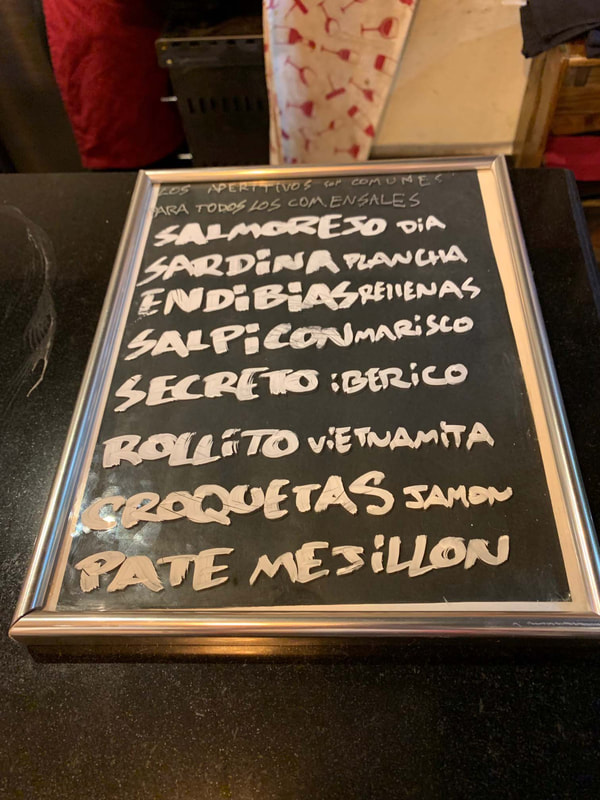 LOS APERITIVOS SON COMUNES
PARA TODOS LOS COMENSALES
SALMOREJO DiA
SARDiNA PLANCHA
ENDiBiAS REllENAS
SALPiCON MARiSCO
SECRETO iBERiCO
ROLLiTO ViETNAMiTA
CROQUETAS JAMON
PATE MEJiLLON